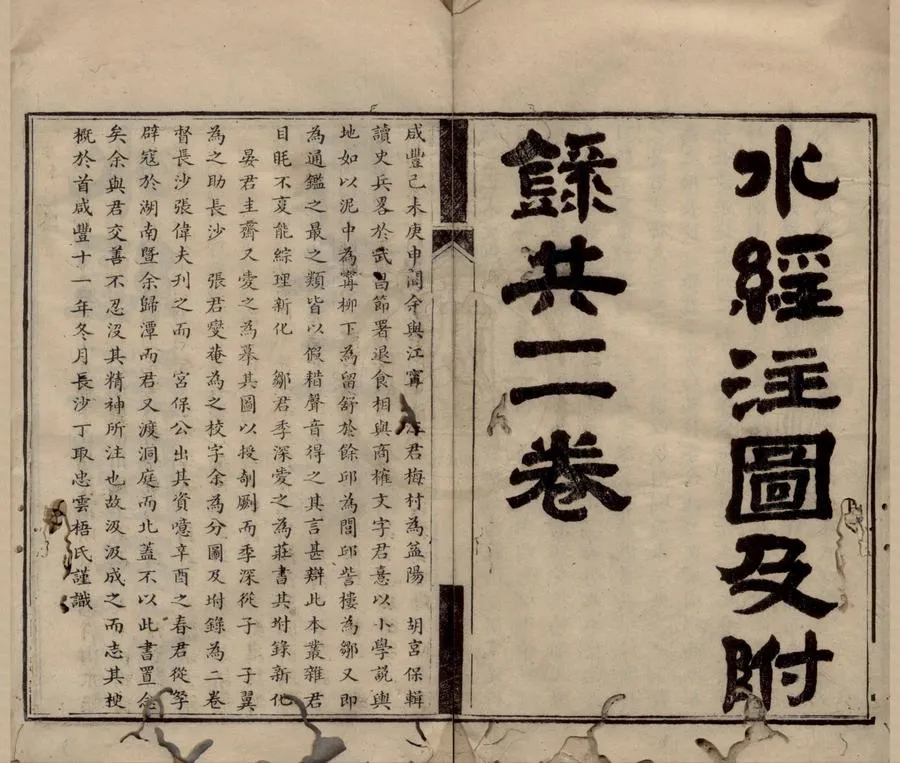 水經注圖及附
錄共二卷
咸豐己未庚申閒余與江寧 君梅村為益陽 胡宮保輯
讀史兵畧於武昌節署退食相與商榷文字君憙以小學說輿
地如以泥中為甯柳下為留舒於餘邱為閭邱訾樓為鄒又即
為通鑑之最之類皆以假耤聲音得之其言甚辯此本叢雜君
目眊不夏能綜理新化 鄒君季深愛之為莊書其坿錄新化
晏君圭齋又愛之為摹其圖以授剞劂而季深從子 子翼
為之助長沙 張君燮菴為之校字余為分圖及坿錄為二卷
督長沙張偉夫刋之而 宮保公出其資噫辛酉之春君從
辟寇於湖南暨余歸潭而君又渡洞庭而北蓋不以此書置念
矣余與君交善不忍沒其精神所注也故汲汲成之而志其梗
概於首咸豐十一年冬月長沙丁取忠雲梧氏謹識